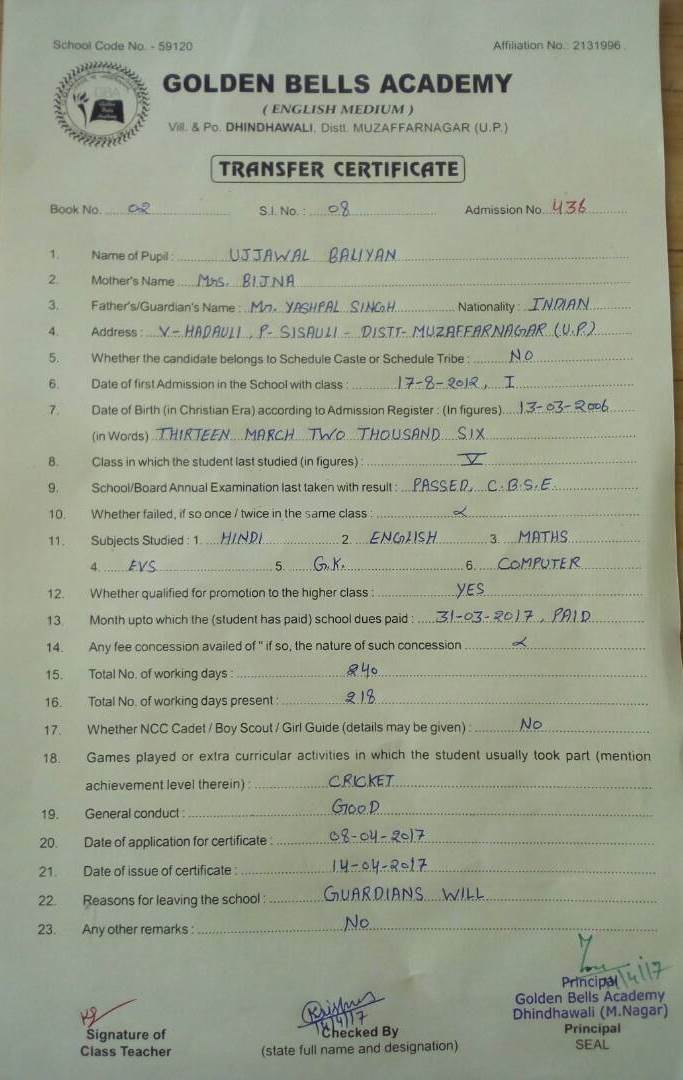 School Code No. - 59120 Affiliation No.: 2131996
GOLDEN BELLS ACADEMY
( ENGLISH MEDIUM )
Vill. & Po. DHINDHAWALI, Distt. MUZAFFARNAGAR (U.P.)
TRANSFER CERTIFICATE
Book No. 02 S.I. No. : 08 Admission No. 436
1. Name of Pupil : UJJAWAL BALIYAN
2. Mother's Name Mrs. BIJNA
3. Father's/Guardian's Name : Mr. YASHPAL SINGH Nationality : INDIAN
4. Address : V- HADAULI, P- SISAULI - DISTT- MUZAFFARNAGAR (U.P.)
5. Whether the candidate belongs to Schedule Caste or Schedule Tribe : NO
6. Date of first Admission in the School with class : 17-8-2012, I
7. Date of Birth (in Christian Era) according to Admission Register : (In figures) 13-03-2006
(in Words) THIRTEEN MARCH TWO THOUSAND SIX
8. Class in which the student last studied (in figures) : V
9. School/Board Annual Examination last taken with result : PASSED, C.B.S.E
10. Whether failed, if so once / twice in the same class :
11. Subjects Studied : 1. HINDI 2. ENGLISH 3. MATHS
4. EVS 5. G.K. 6. COMPUTER
12. Whether qualified for promotion to the higher class : YES
13. Month upto which the (student has paid) school dues paid : 31-03-2017, PAID
14. Any fee concession availed of " if so, the nature of such concession
15. Total No. of working days : 240
16. Total No. of working days present : 218
17. Whether NCC Cadet / Boy Scout / Girl Guide (details may be given) : NO
18. Games played or extra curricular activities in which the student usually took part (mention
achievement level therein) : CRICKET
19. General conduct : GOOD
20. Date of application for certificate : 08-04-2017
21. Date of issue of certificate : 14-04-2017
22. Reasons for leaving the school : GUARDIANS WILL
23. Any other remarks : NO
Principal
Golden Bells Academy
Dhindhawali (M.Nagar)
14/4/17
Signature of Checked By Principal
Class Teacher (state full name and designation) SEAL